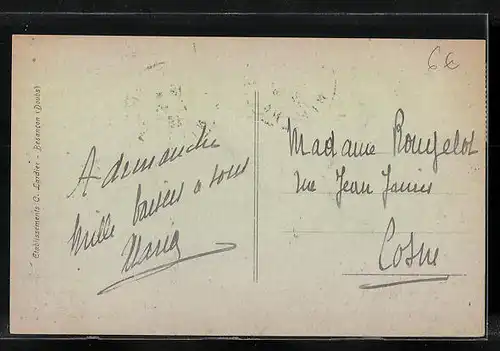 Etablissements C. Lardier - Besançon (Doubs)
6€
A dimanche
Mille baisers a tous
Maria
Madame Rougelot
rue Jean Jaurès
Cosne